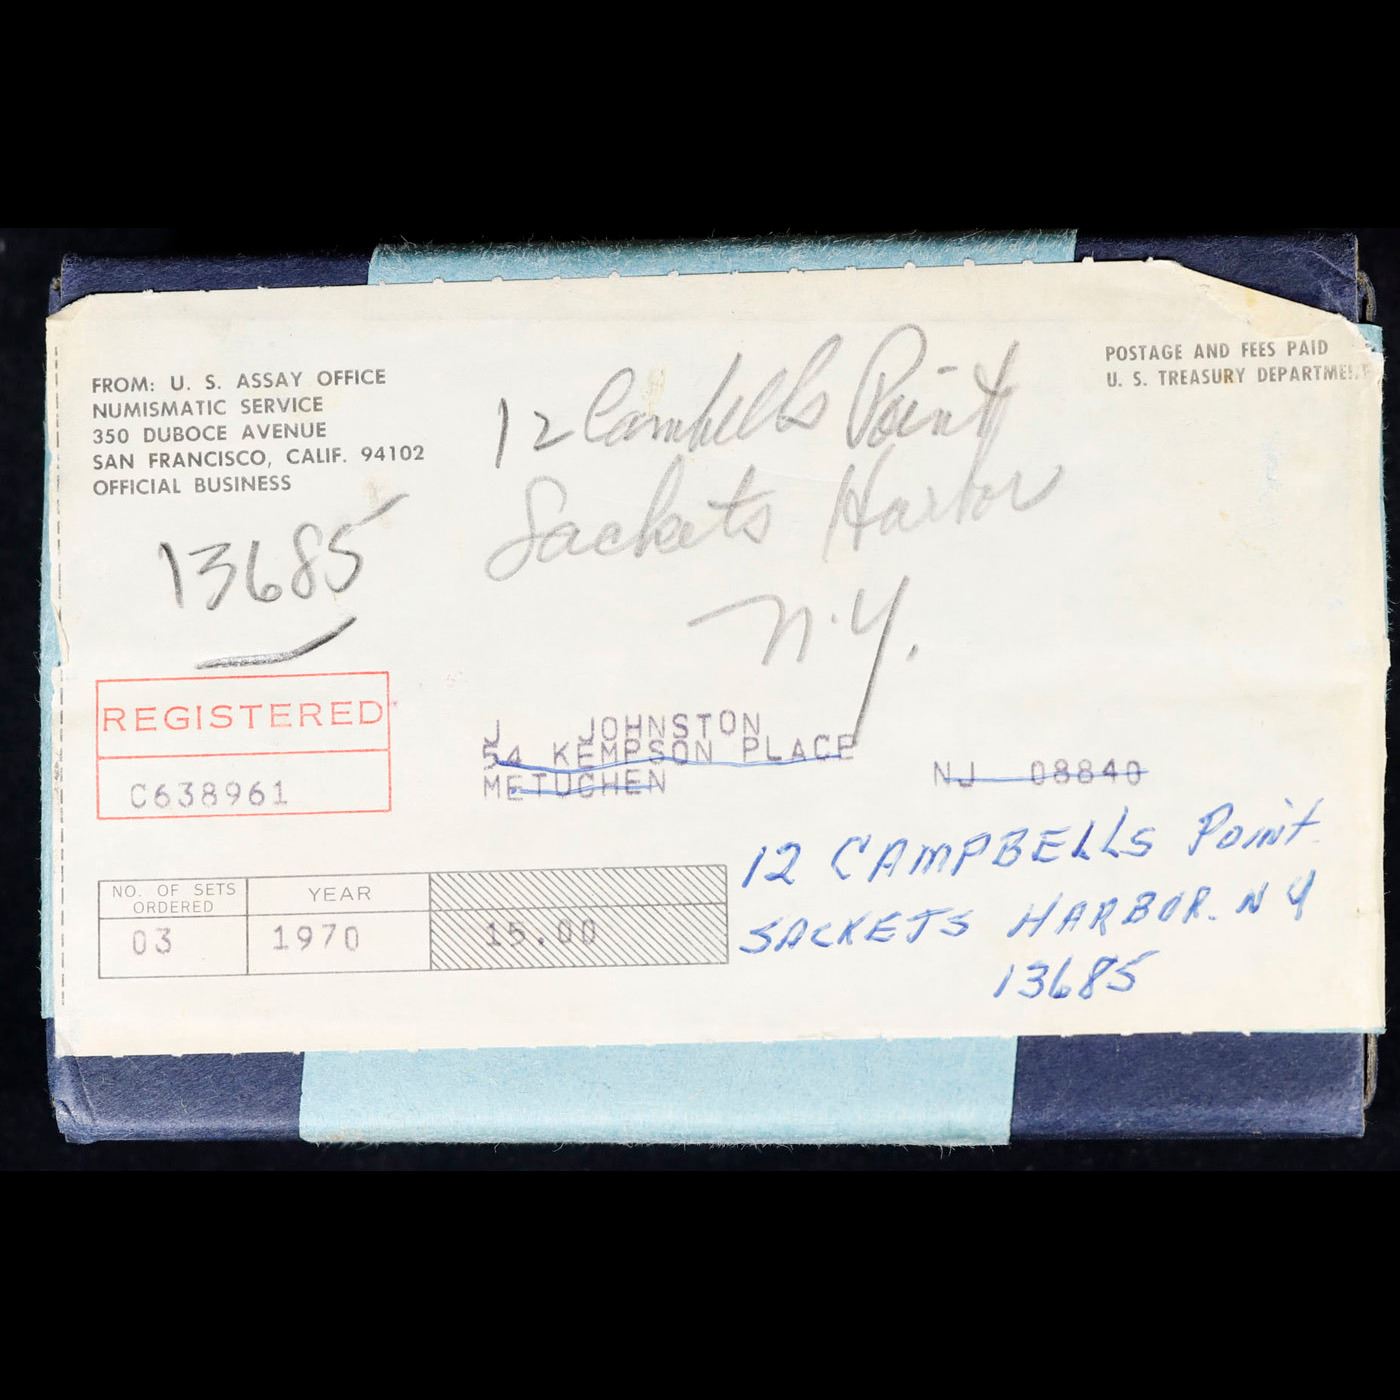 FROM: U. S. ASSAY OFFICE
NUMISMATIC SERVICE
350 DUBOCE AVENUE
SAN FRANCISCO, CALIF. 94102
OFFICIAL BUSINESS
POSTAGE AND FEES PAID
U. S. TREASURY DEPARTMENT
12 Campbells Point
Sackets Harbor
N.Y.
13685
REGISTERED
C638961
J JOHNSTON
54 KEMPSON PLACE
METUCHEN NJ 08840
12 CAMPBELLS Point
SACKETS HARBOR. NY
13685
NO. OF SETS ORDERED YEAR
03 1970 15.00